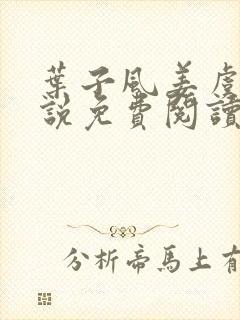 葉子風姜虞
說免費閱讀
分析帝馬上有